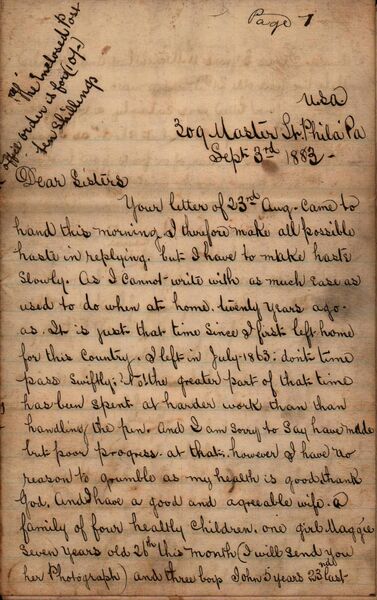 Page 1
The Enclosed Post
office order is for (10/-)
ten Shillings
USA
309 Master St. Phila Pa
Sept 3rd 1883
Dear Sisters
Your letter of 23rd Aug. Came to
hand this morning. I therefore make all possible
haste in replying. but I have to make haste
Slowly. As I Cannot write with as much Ease as
used to do when at home. twenty Years ago.
as. It is just that time Since I first left home
for this Country. I left in July 1863. dont time
pass Swiftly. the greater part of that time
has been Spent at harder work than than
handling the pen. And I am sorry to Say have made
but poor progress. at that. however I have no
reason to grumble as my health is good, thank
God, And I have a good and agreeable wife. a
family of four healthy Children. one girl Maggie
Seven Years old 26th this month (I will send you
her Photograph) and three boys John 5 years 23rd last